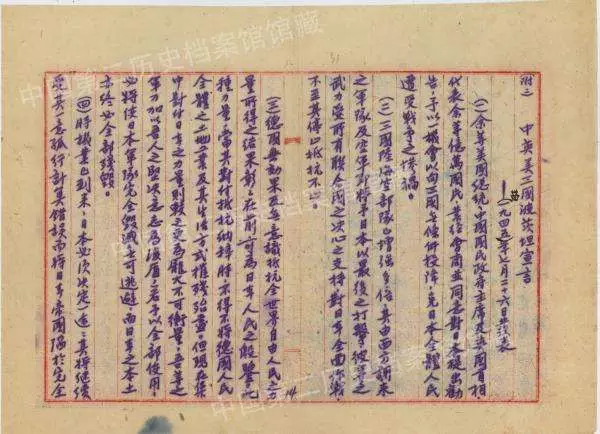 附二 中英美三國波茨坦宣言
(一九四五年七月二十六日發表)
(一)余等美國總統中國國民政府主席及英國首相,
代表余等億萬國民業經會商並同意對日本提出勸
告,予以機會以向三國無條件投降,免日本全體人民
遭受戰爭之慘禍。
(二)三國陸海空部隊已增強多倍,其由西方調來
之軍隊及空軍即將予日本以最後之打擊,彼等之
武力受所有聯合國之決心之支持對日本全面作戰,
不至其停止抵抗不止。
(三)德國無効果及無意識抵抗全世界自由人民之力
量所得之結果彰彰在前可為日本人民之殷鑒此
種力量當其對付抵抗納粹時不得不將德國人民
全體之土地工業及其生活方式摧殘殆盡但現在集
中對付日本之力量則較之更為龐大不可衡量,吾等之
軍力加以吾人之堅決意志為後盾若予以全部使用,
必將使日本軍隊完全毀滅,無可逃避,而日本之本土
亦終必全部殘毀。
(四)時機業已到來,日本必須決定一途:其將繼續
受其一意孤行計算錯誤而將日本帝國陷於完全
14
31
中国第二历史档案馆馆藏
中国第二历史档案馆馆藏